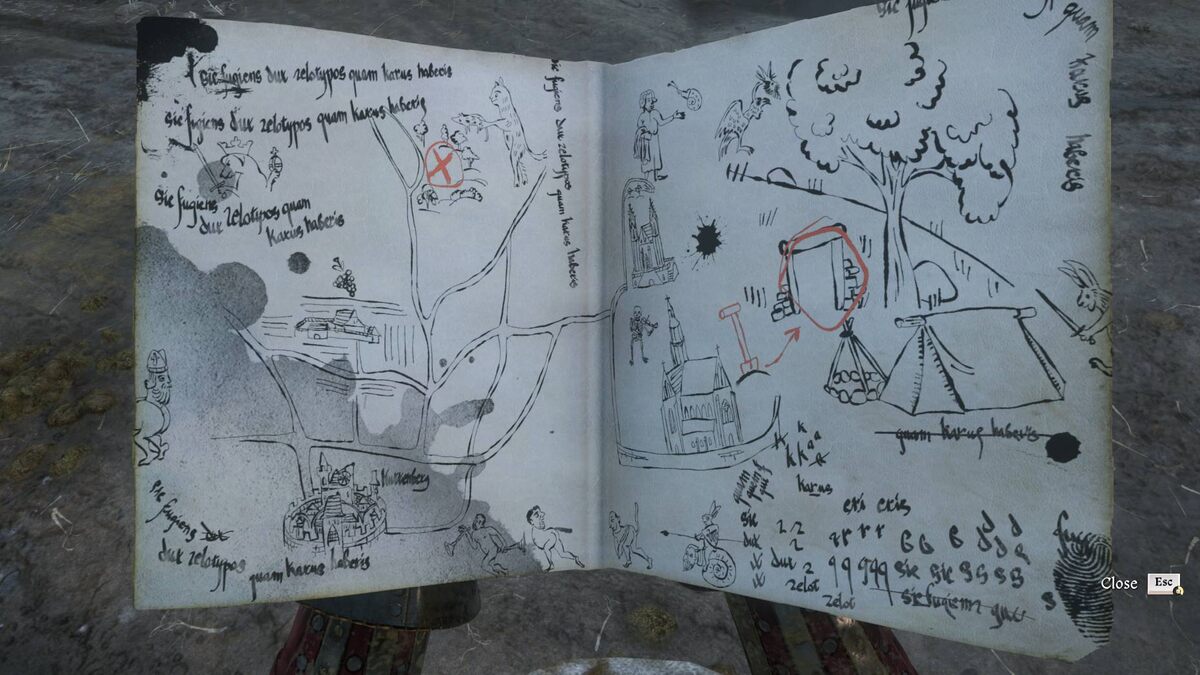 sic fugiens dux zelotypos quam karus haberis
sic fugiens dux zelotypos quam karus haberis
sic fugiens
dux zelotypos quam
karus haberis
sic fugiens dux zelotypos quam karus haberis
Kuttenberg
sic fugiens dux
dux zelotypos
quam karus haberis
sic fugiens
quam karus haberis
quam karus haberis
k k a
k k a a k
karus
quam
quam
qui
eri eris
sic 2 2
dux 2
dux 2
zelot
zelot
r r r r
G G G d d d
q q q q q sic sic S S S S
sic fugiens
s
Close Esc